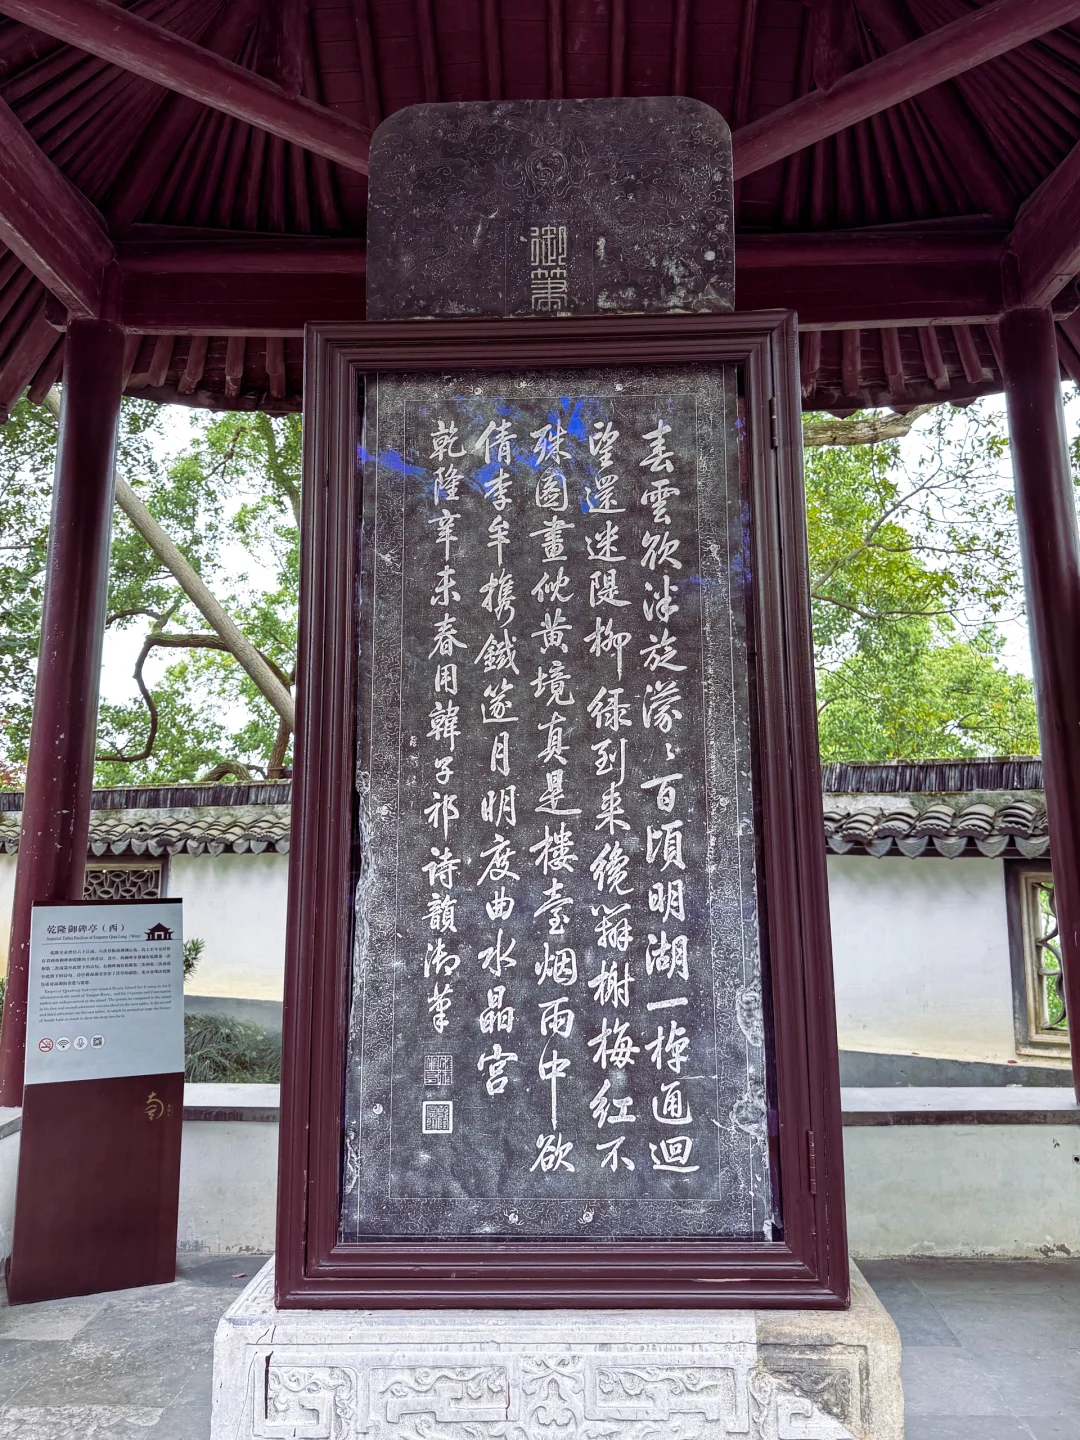 御筆
春雲欲泮旋濛〻百頃明湖一棹通迴
望還迷隄柳綠到來纔辨榭梅紅不
殊圖畫倪黃境真是樓臺烟雨中欲
倩李牟攜鐵篴月明度曲水晶宮
乾隆辛未春用韓子祁詩韻御筆
乾隆御碑亭（西）
Imperial Tablet Pavilion of Emperor Qian Long (West)
南